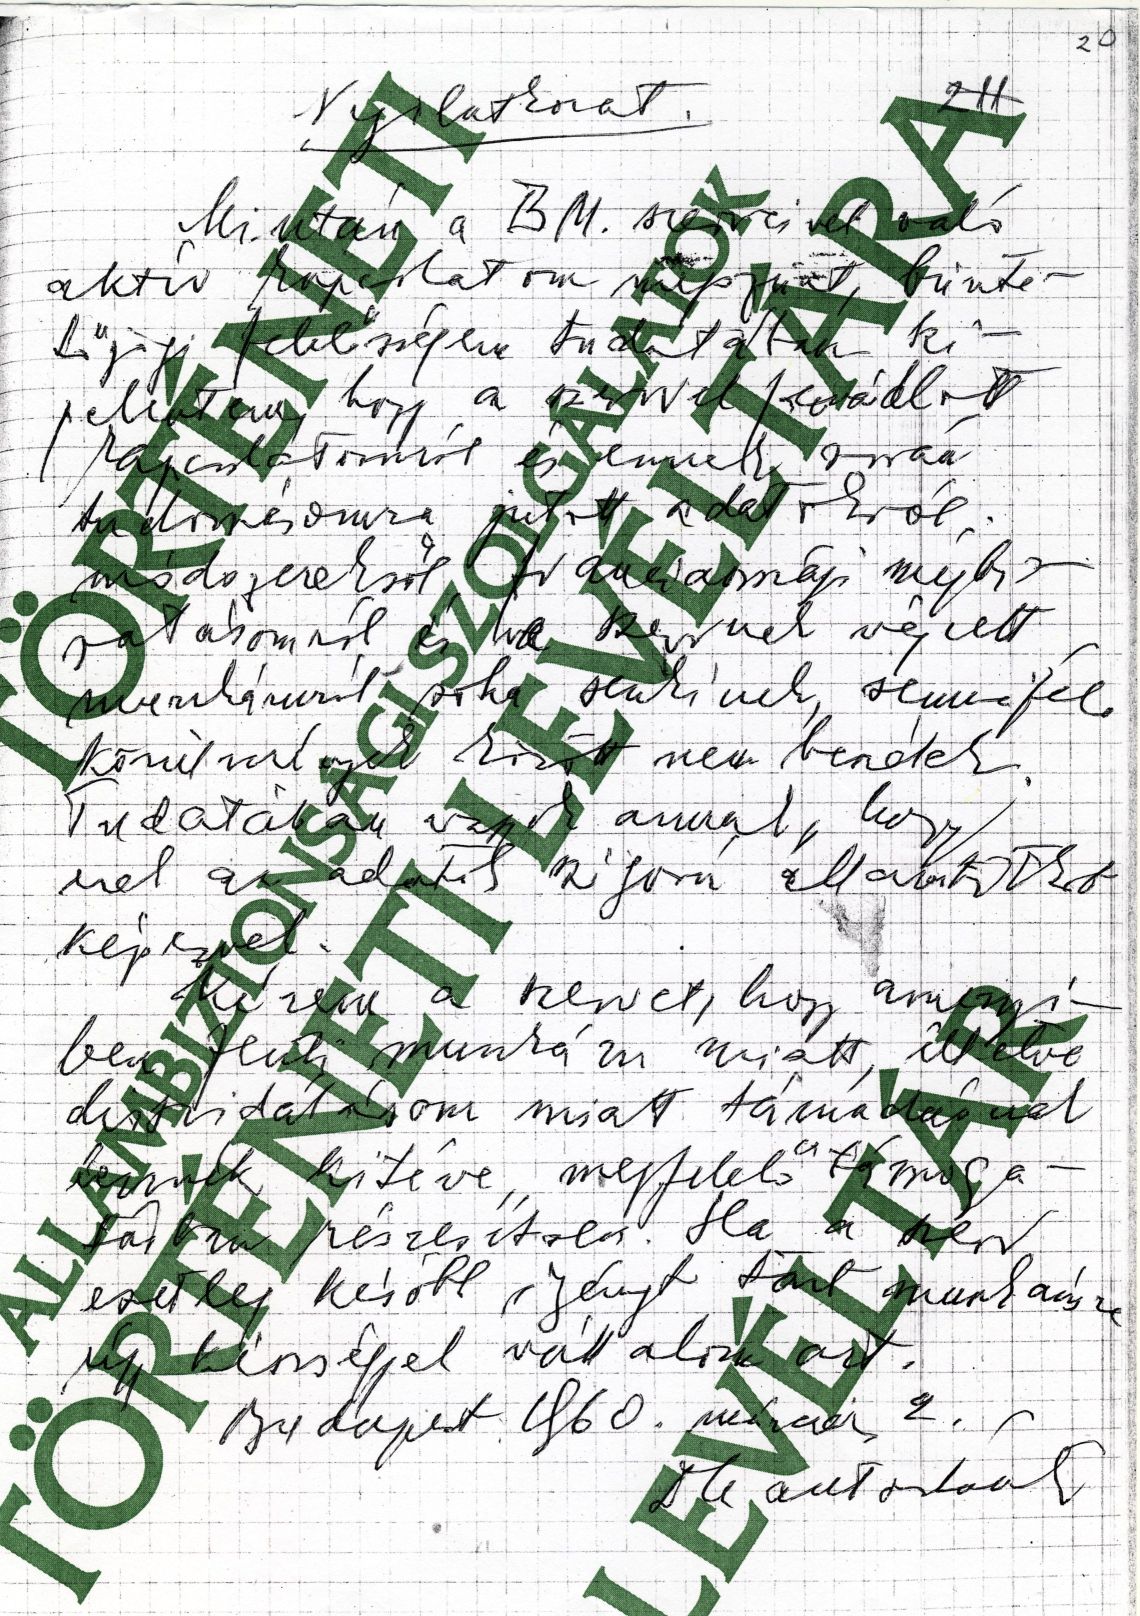 20
211
Nyilatkozat.
Miután a BM. szerveivel való
aktív kapcsolatom megszünt, bünte-
tőjogi felelősségem tudatában ki-
jelentem, hogy a szervvel fennállott
kapcsolatomról és ennek során
tudomásomra jutott adatokról,
módszerekről, franciaországi megbi-
zatásomról és a szervnek végzett
munkámról soha senkinek, semmiféle
körülmények között nem beszélek.
Tudatában vagyok annak, hogy
az adatok szigorú államtitkot
képeznek.
Kérem a szervet, hogy amennyi-
ben fenti munkám miatt, illetve
disszidálásom miatt támadásnak
lennék kitéve, megfelelő támoga-
tásban részesítsen. Ha a szerv
esetleg később igényt tart munkámra
úgy készséggel vállalom azt.
Budapest 1960. március 2.
TÖRTÉNETI
ÁLLAMBIZTONSÁGI SZOLGÁLATOK
TÖRTÉNETI LEVÉLTÁRA
LEVÉLTÁR